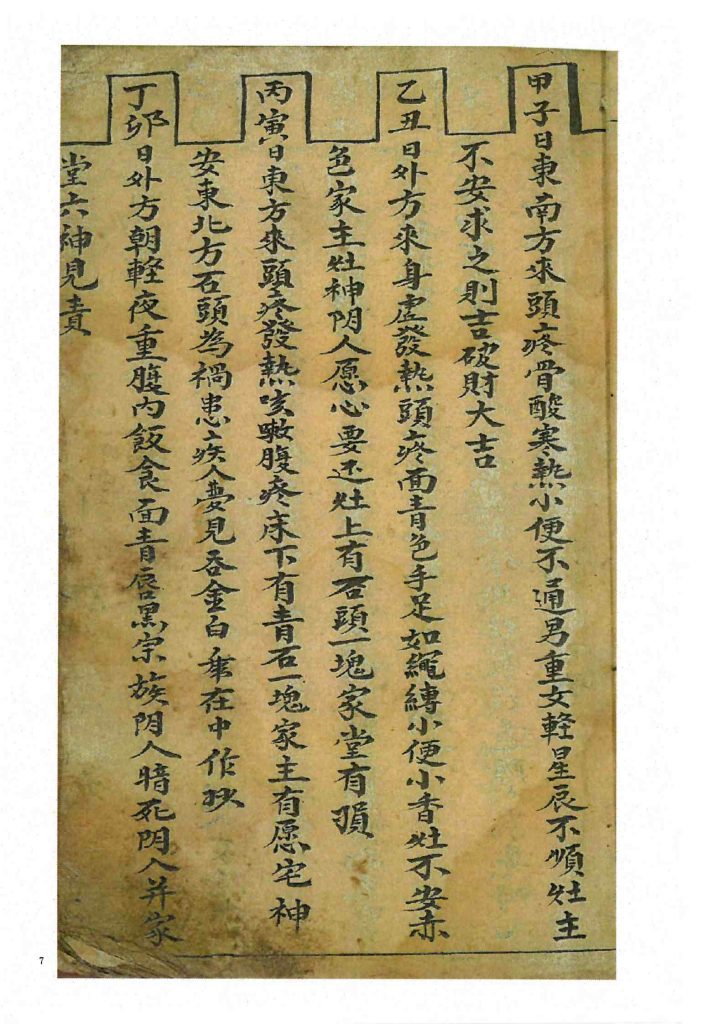 甲子日東南方來頭疼骨酸寒熱小便不通男重女軽星辰不順灶主
不安求之則吉破財大吉
乙丑日外方來身虚發熱頭疼面青色手足如繩縛小便小香灶不安赤
色家主灶神阴人愿心要还灶上有石頭一塊家堂有
丙寅日東方來頭疼發熱咳嗽腹疼床下有青石一塊家主有愿宅神
安東北方石頭為禍患疾人夢見吞金白在中作
丁卯日外方朝軽夜重腹内飯食面青唇黑宗族阴人暗死阴人并家
堂六神見責
7